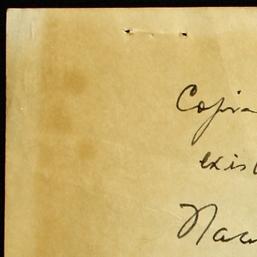 Copia
exis
Nac